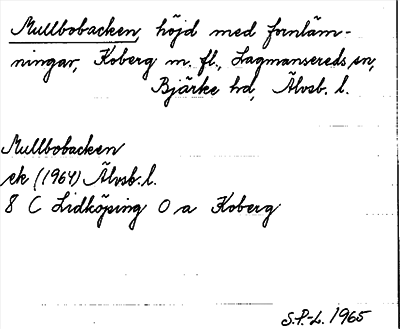 Mullbobacken, höjd med fornläm-
ningar, Koberg m. fl., Lagmansereds sn,
Bjärke hd, Älvsb. l.
Mullbobacken
ek (1964) Älvsb. l.
8 C Lidköping O a Koberg
S.P.-L. 1965